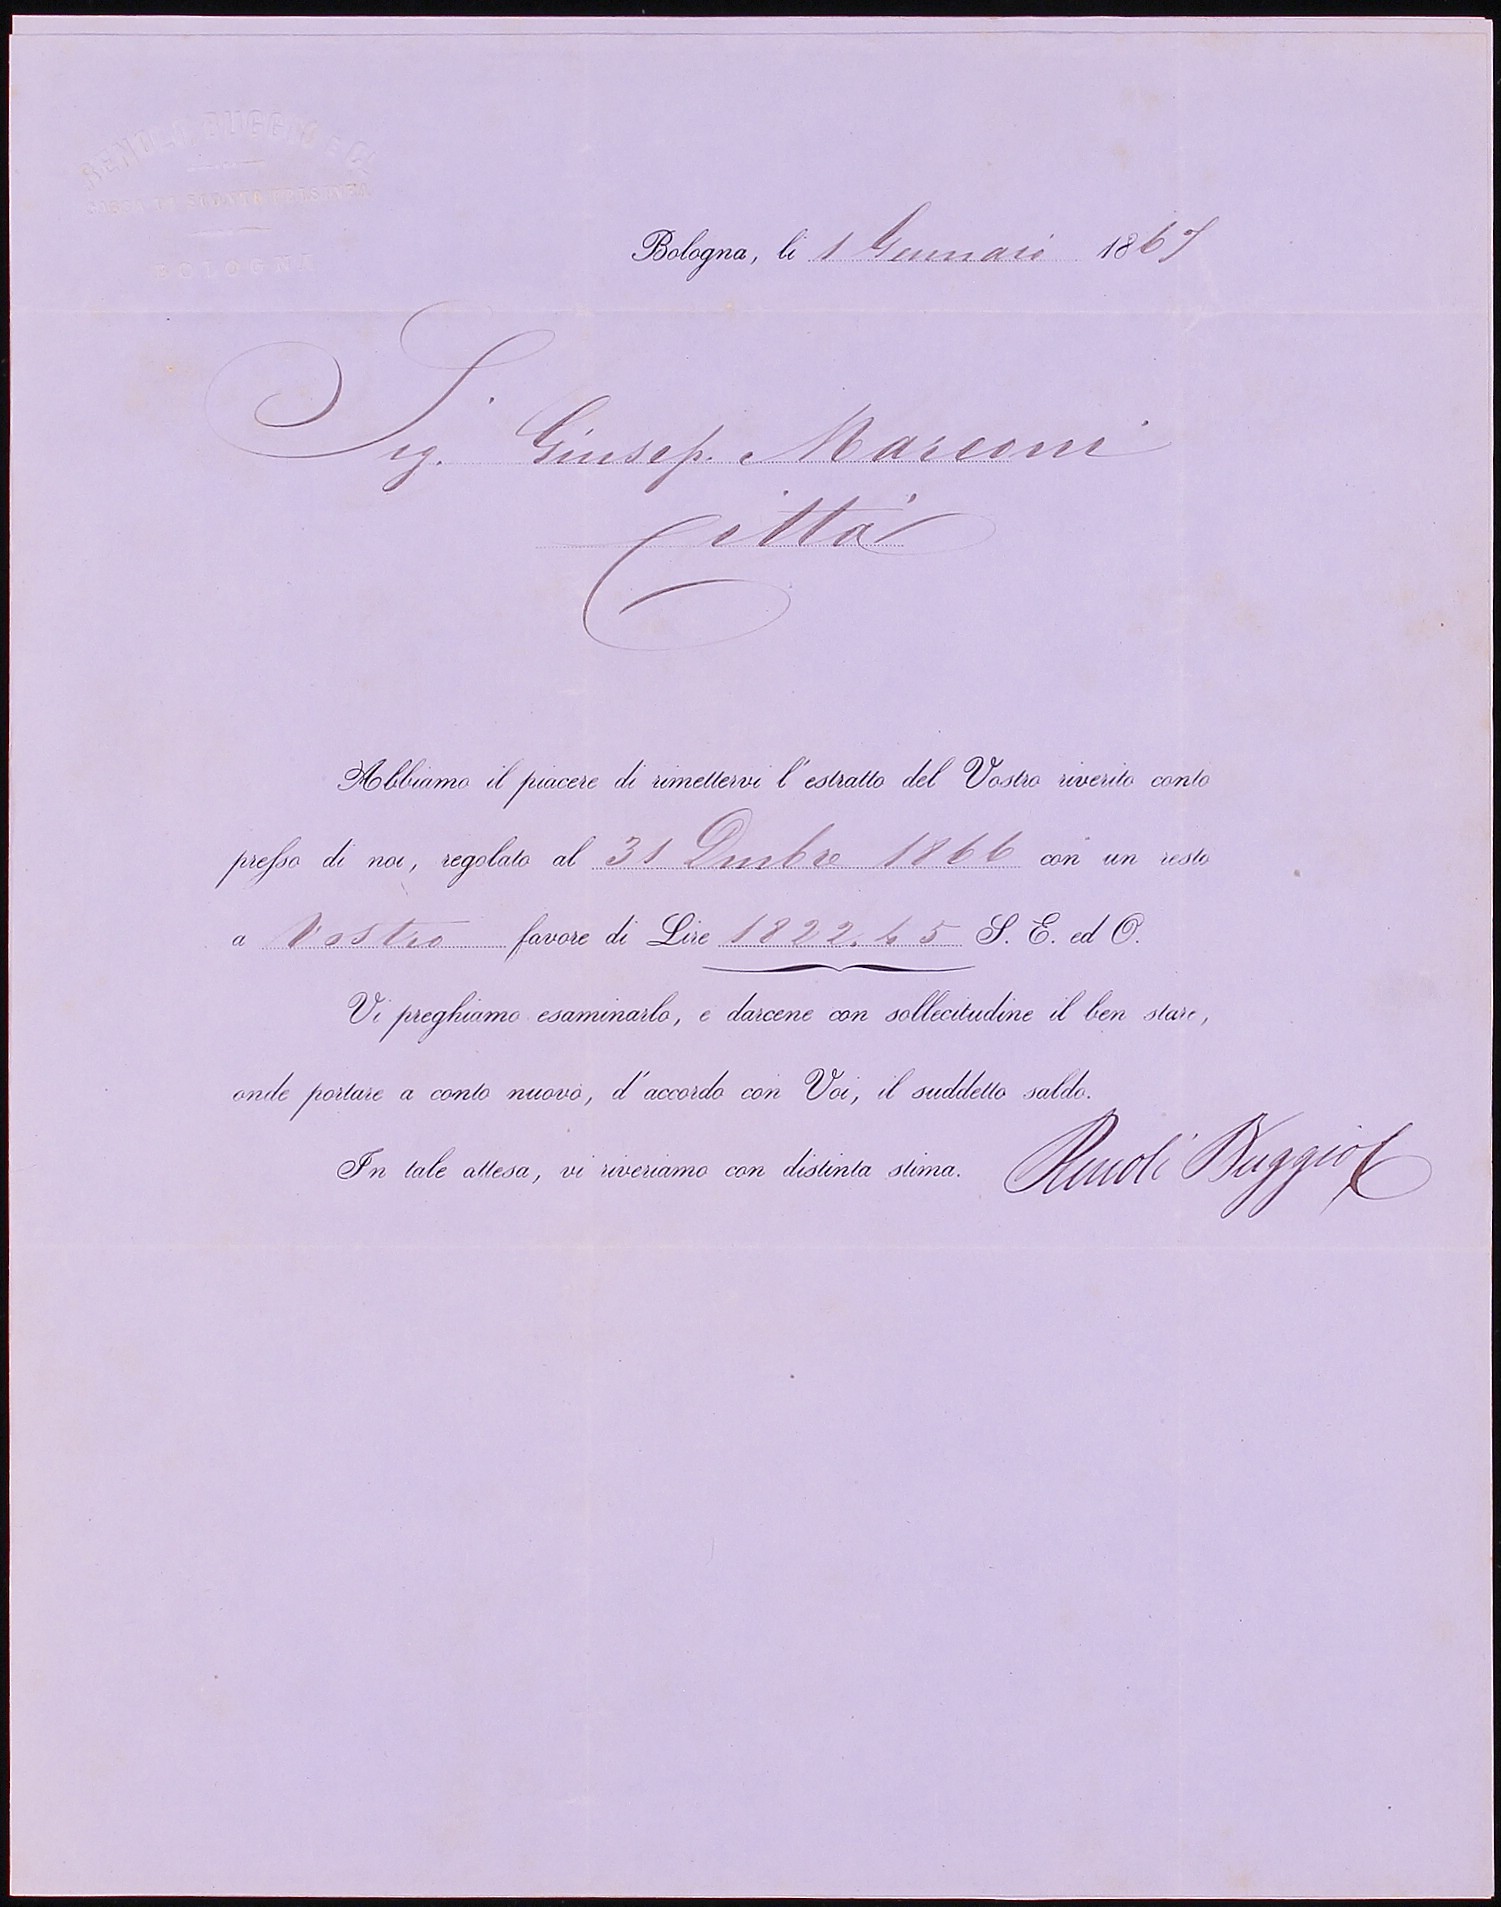 RENOLI, BUGGIO E C.
CASSA DI SCONTO TRISTINA
BOLOGNA
Bologna, li 1 Gennaio 1867
Sig. Giusep. Marconi
Città
Abbiamo il piacere di rimettervi l'estratto del Vostro riverito conto
presso di noi, regolato al 31 Dmbre 1866 con un resto
a Vostro favore di Lire 1822.45 S. E. ed O.
Vi preghiamo esaminarlo, e darcene con sollecitudine il ben stare,
onde portare a conto nuovo, d'accordo con Voi, il suddetto saldo.
In tale attesa, vi riveriamo con distinta stima. Renoli Buggio C